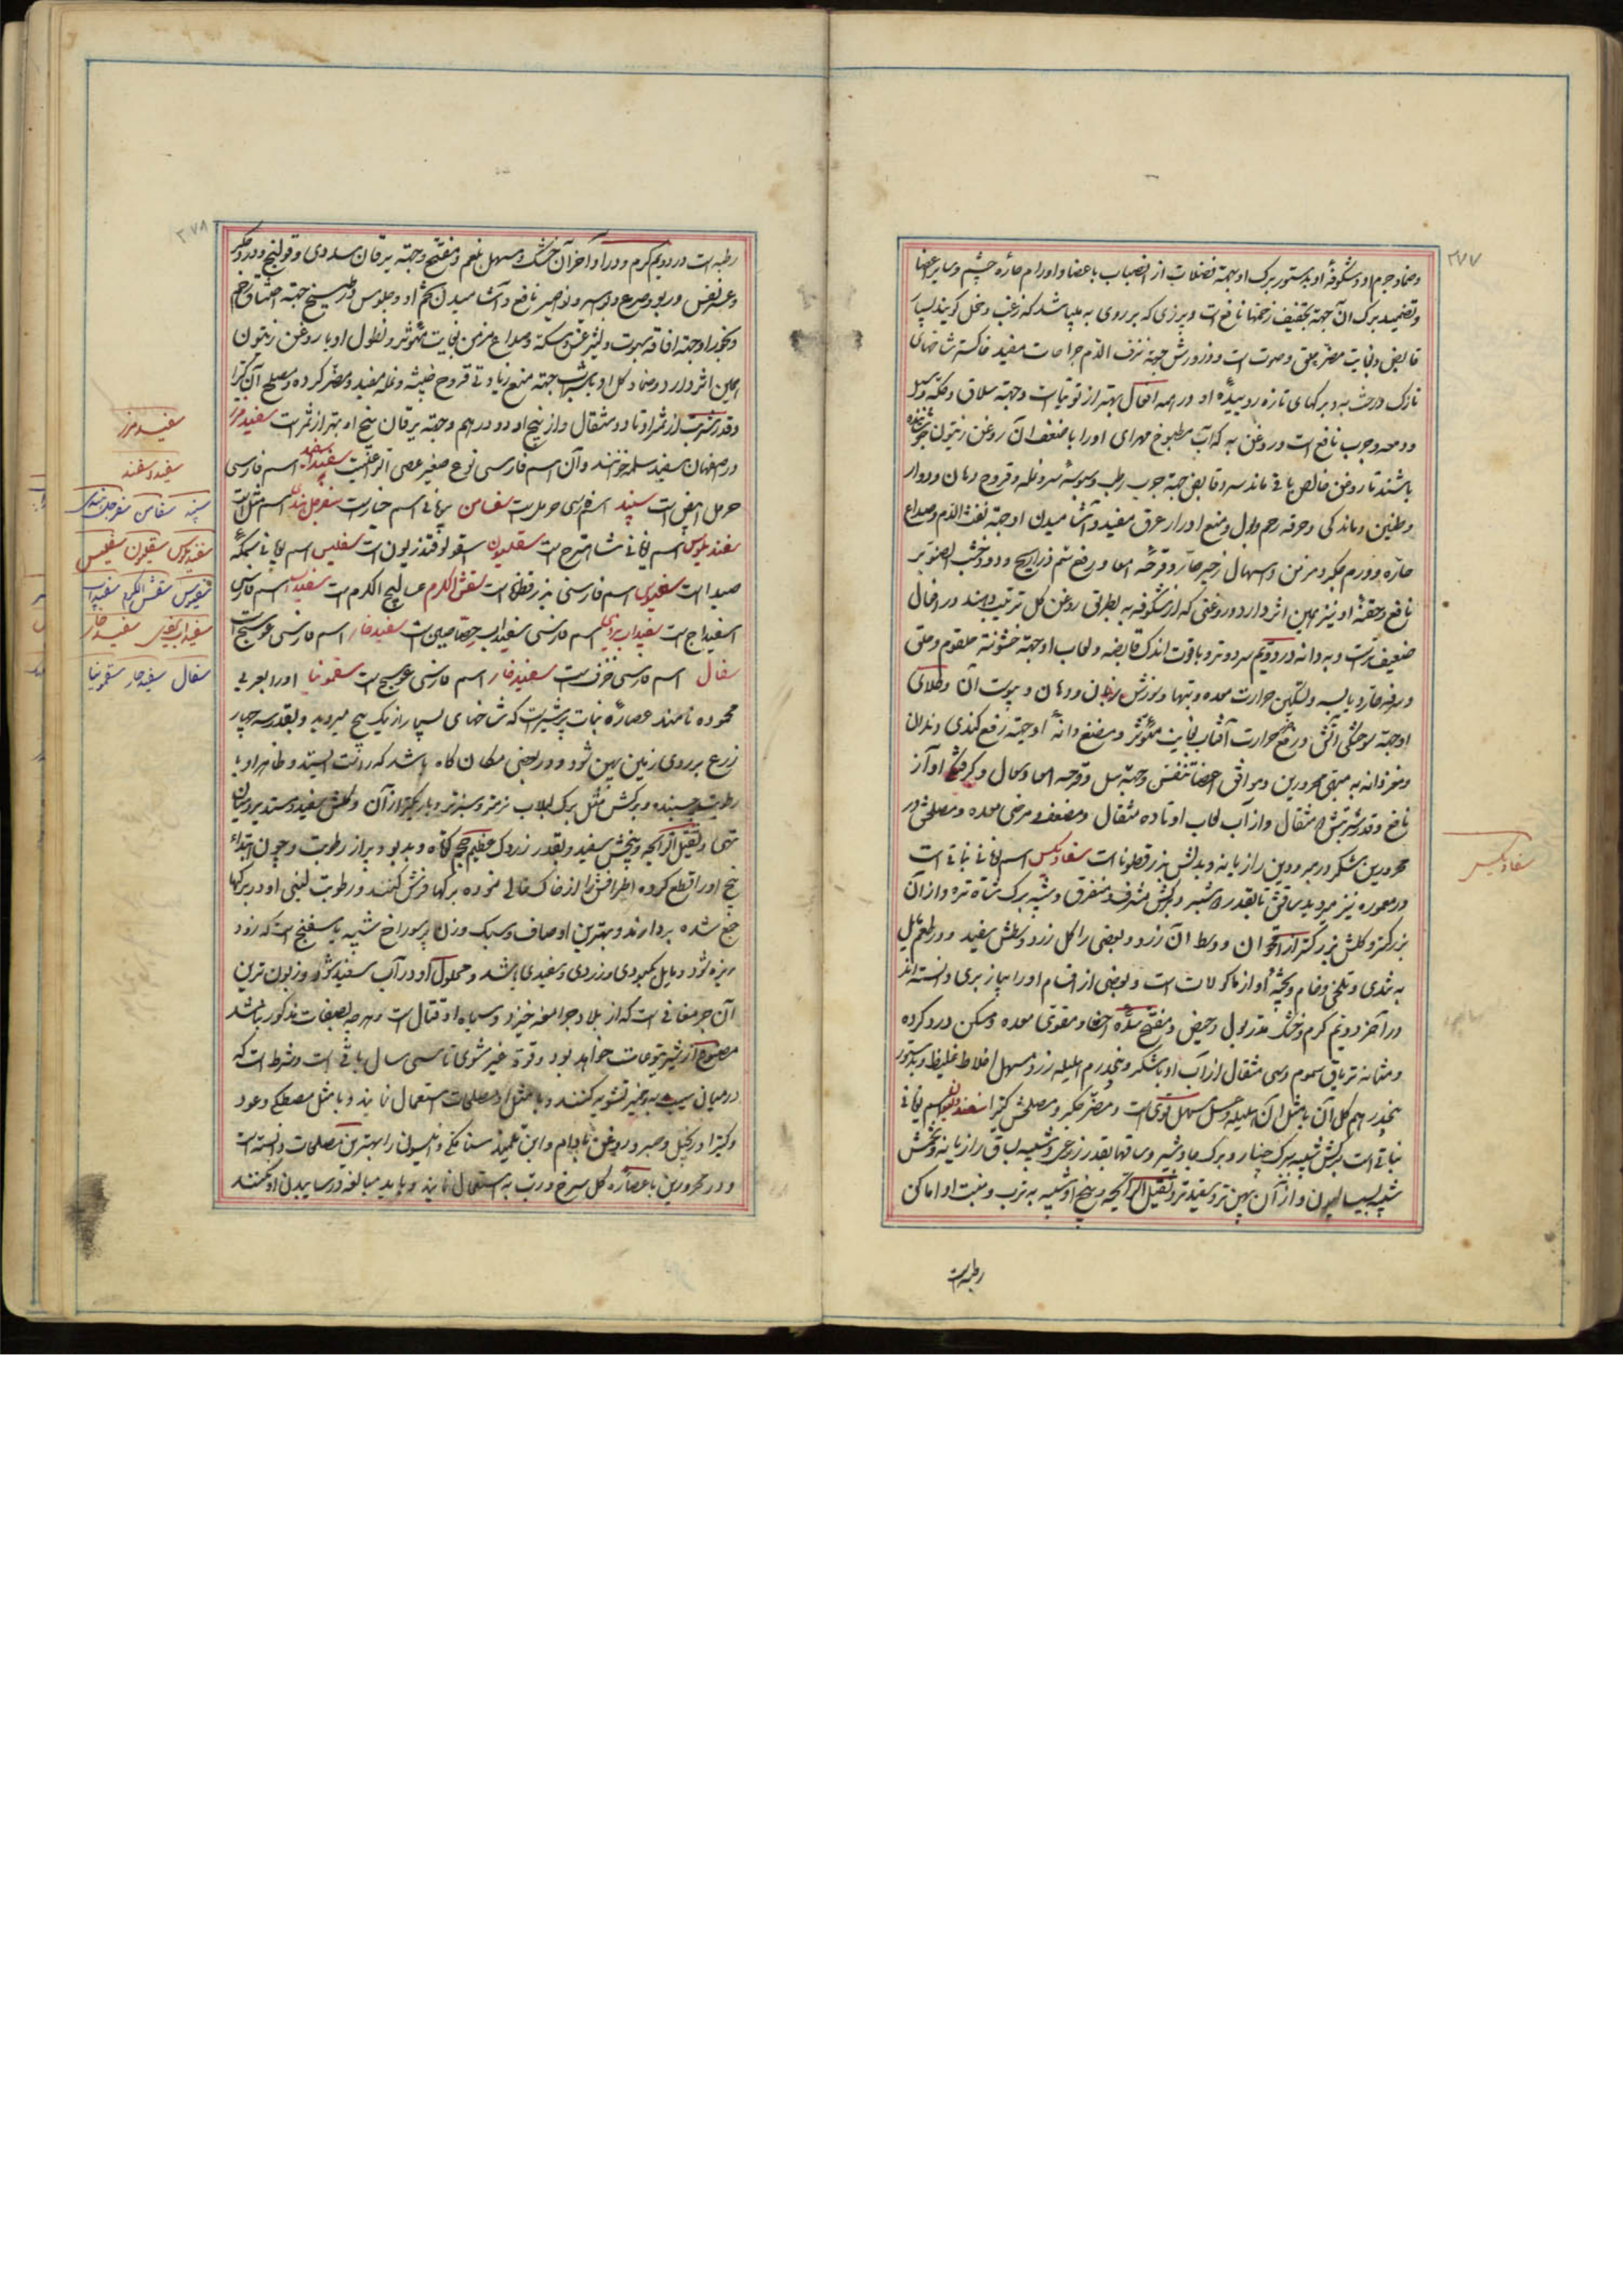 ۲۷۷
وضماد جرم او و شکوفهٔ او بدستور برک او بجهة فضلات از انصباب باعضا و اورام حارهٔ چشم و سایر اعضا
و تضمید برک آن جهة تجفیف زخمها نافع است و پرزی که بر روی به میباشد که زغب و خمل کویند بسیار
قابض و بغایت مضر حلق و صوت است و ذرورش جهة نزف الدم جراحات مفید خاکستر شاخهای
نازک درخت به و برکهای تازه روییدهٔ او در همه افعال بهتر از توتیاست و جهة سلاق و حکه و
و دمعه و جرب نافع است و روغن به که آب مطبوخ مهرای او را با ضعف آن روغن زیتون جوشانیده
باشند تا روغن خالص باقی ماند سرد و قابض جهة جرب رطب و سبوسهٔ سر و نمله و قروح دهان و دوار
و طنین و ماندکی و حرقه رحم و بول و منع ادرار عرق مفید و آشامیدن او جهة نفث الدم و صداع
حاره و ورم جکر و مزمن و اسهال زحیر حار و قرحهٔ امعا و رفع سم ذراریح و دود خشب الصنوبر
نافع و حقنهٔ او نیز همین اثر دارد و روغنی که از شکوفه به بطریق روغن کل ترتیب دهند در افعال
ضعیفتر است و به دانه در دویم سرد و تر و با قوت اندک قابضه و لعاب او جهة خشونة حلقوم و حلق
و سرفه حار و یابسه و تسکین حرارت معده و تبها و سوزش زبان و دهان و یبوست آن و طلای
او جهة سوختکی آتش و رفع حرارت آفتاب بغایت مؤثر و مضغ دانهٔ او جهت رفع کندی دندان
و مغز دانه به مبهی محرورین و موافق اعضا تنفس و جهة سل و قرحه امعا و سعال و کرفتکی آواز
نافع و قدر شربتش ۵ مثقال و از آب لعاب او تا ده مثقال و مضعف و مرخی معده و مصلحش در
محرورین شکر و در مبرودین رازیانه و بدلش بزرقطونا است سفادیکس اسم یونانی نباتی است
در معموره نیز میروید ساقش تا بقدر ۵ شبر و برکش مشرف و متفرق و شبیه به برک شاه تره و از آن
بزرکتر و کلش بزرکتر از اقحوان و وسط آن زرد و بعضی را کل زرد و وسطش سفید و در طعم مایل
به تندی و تلخی و خام و پختهٔ او از ماکولات است و بعضی از اقسام او را پیاز بری دانسته اند
در آخر دویم کرم و خشک مدر بول و حیض و مفتح سدهٔ احشا و مقوی معده و مسکن درد کرده
و مثانه تریاق سموم و سی مثقال از آب او با شکر و پنجدرم هلیله زرد مسهل اخلاط غلیظ و بدستور
پنجدرهم کل آن با مثل آن هلیله و عسل مسهل قوی است و مضر جکر و مصلحش کتیرا سفندولیون اسم یونانی
نباتی است برکش شبیه ببرک چنار و برک جاوشیر و ساقها بقدر زرعی و شبیه بساق رازیانه و تخمش
شبیه بسیسالیون و از آن پهن تر و سفیدتر و ثقیل الرائحه و بیخ او شبیه به ترب و منبت او اماکن
رطبه است
سفادیکس
۲۷۸
رطبه است در دویم کرم و در اواخر آن خشک و مسهل بلغم و مفتح و جهة یرقان سددی و قولنج و درد جکر
و عسر نفس و ربو و صرع و بواسیر و نواصیر نافع و آشامیدن تخم او و جلوس در طبیخ جهة اختناق رحم
و بخور او جهة افاقه سبوت و لیثرغس و سکته و صداع مزمن بغایت مؤثر و نطول او با روغن زیتون
همین اثر دارد و ضماد کل او با سداب جهة منع زیادتی قروح خبیثه و نمله مفید و مضر کرده و مصلح آن کتیرا
و قدر شربت از ثمر او تا دو مثقال و از بیخ او دو درهم و جهة یرقان بیخ او بهتر از ثمر است سفید مرز
در اصفهان سفید سلمه خوانند و آن اسم فارسی نوع صغیر عصی الراعیست سفید اسفند اسم فارسی
حرمل ابیض است سپند اسم فارسی حرمل است سفاس یونانی اسم خیار است سفرجل هندی اسم شل است
سفندیلوس اسم یونانی شاهترج است سقلیون سقولوقندریون است سفلیس اسم یونانی سمکهٔ
صیدا است سفیوس اسم فارسی بزرقطونا است سفش الکرم عسالیج الکرم است سفیداب اسم فارسی
اسفیداج است سفیداب بریلی اسم فارسی سفیداب رصاصین است سفید خار اسم فارسی عوسج است
سفال اسم فارسی خزف است سفید خار اسم فارسی عوسج است سقمونیا او را بعربی
محموده نامند عصارهٔ نبات پرشیر است که شاخهای بسیار از یک بیخ میروید و بقدر سه چهار
زرع بر روی زمین پهن شود و در بعضی مکان کاه باشد که راست ایستد و ظاهر او با
رطوبت چسبنده و برکش مثل برک لبلاب نرمتر و سبزتر و باریکتر از آن و کلش سفید و مستدیر و میان
تهی و ثقیل الرائحه و بیخش سفید و بقدر زردک عظیم الحجم کوتاه و بدبو و پر از رطوبت و چون ابتداء
بیخ او را قطع کرده اطرافش را از خاک خالی نموده برکها فرش کنند و رطوبت لبنی او در برکها
جمع شده بردارند و بهترین او صاف و سبک وزن پرسوراخ شبیه باسفنج است که زود
ریزه شود و مایل بکبودی و زردی و سفیدی باشد و محلول او در آب سفید شود و زبون ترین
آن جرمقانی است که از بلاد جرامقه خیزد و سیاه او قتال است و هر چه بصفات مذکور نباشد
مصنوع از شیر یتوعات خواهد بود و قوة غیر مشوی تا سی سال باقی است و شرط است که
در میان سیب و به و خمیر تشویه کنند و با مثل او مصلحات استعمال نمایند و با مثل مصطکی و عود
و کتیرا و زنجبیل و صبر و روغن بادام و ابن تلمیذ سنا مکی و انیسون را بهترین مصلحات دانسته است
و در محرورین با عصاره کل سرخ و رب به استعمال نمایند و باید مبالغه در ساییدن او نکنند
سفید مرز
سفید اسفند
سپند سفاس سفرجل هندی
سفندیلوس سقلیون سفلیس
سفیوس سفش الکرم سفیداب
سفیداب بریلی سفید خار
سفال سفید خار سقمونیا